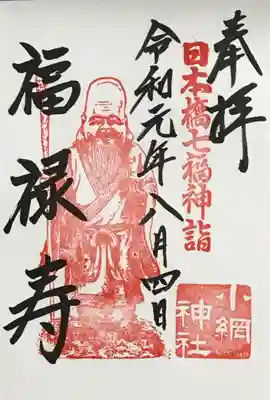 奉拝
日本橋七福神詣
令和元年八月四日
福禄寿
小網
神社